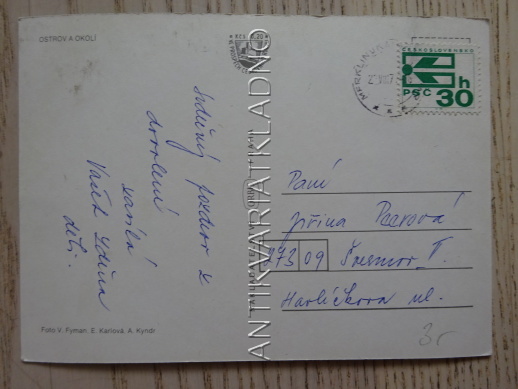 OSTROV A OKOLÍ
ČESKOSLOVENSKO
h
PSČ 30
Srdečný pozdrav z
dovolené
zasílá
Vašek Zdena
děti.
ANTIKVARIAT KLADNO
Paní
Jiřina
273 09
II.
Havlíčkova ul.
Foto V. Fyman, E. Karlová, A. Kyndr
3,-